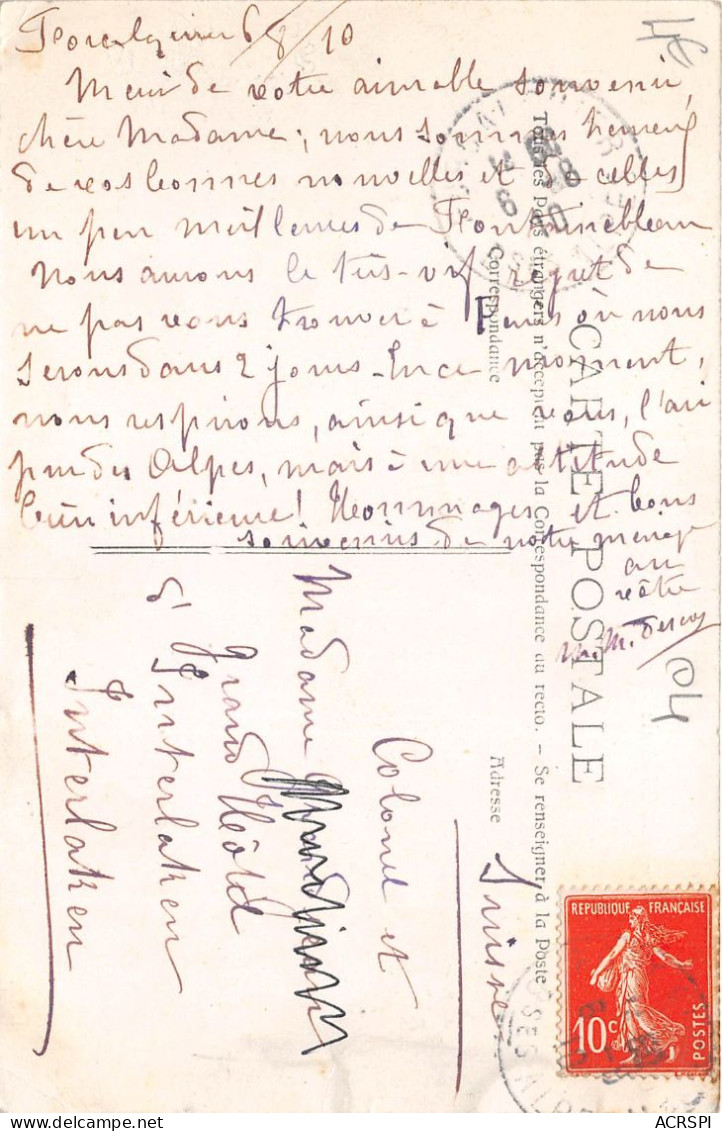 Forcalquier 6/8/10
Merci de votre aimable souvenir,
chère Madame; nous sommes heureux
de vos bonnes nouvelles et de celles
un peu meilleures de Fontainebleau
Nous aurons le très-vif regret de
ne pas vous trouver à où nous
serons dans 2 jours. En ce moment,
nous respirons, ainsi que vous, l'air
pur des Alpes, mais à une altitude
bien inférieure! Hommages et bons
souvenirs de notre ménage
au
vôtre
4€
04
CARTE POSTALE
Tous les Pays étrangers n'acceptent pas la Correspondance au recto. - Se renseigner à la Poste
Correspondance
Adresse
Colonel et
Madame
Grand Hôtel
d'Interlaken
Interlaken
Suisse
REPUBLIQUE FRANÇAISE
10c
POSTES
ACRSPI